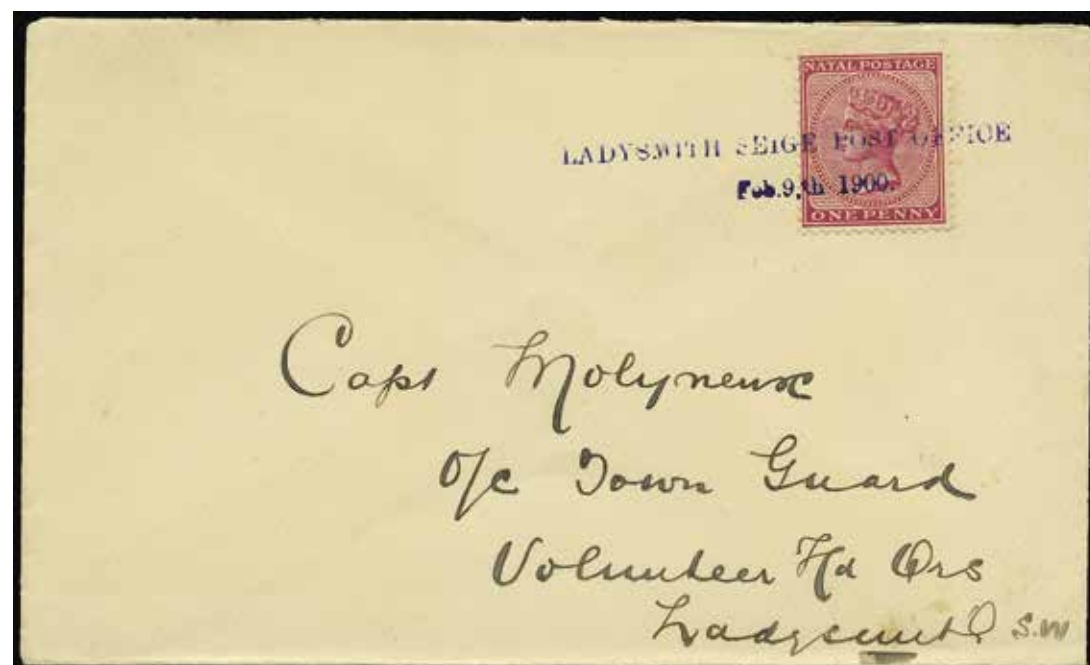 NATAL POSTAGE
LADYSMITH SEIGE POST OFFICE
Feb.9.th 1900.
ONE PENNY
Capt Molyneux
O/c Town Guard
Volunteer Hd Qrs
Ladysmith